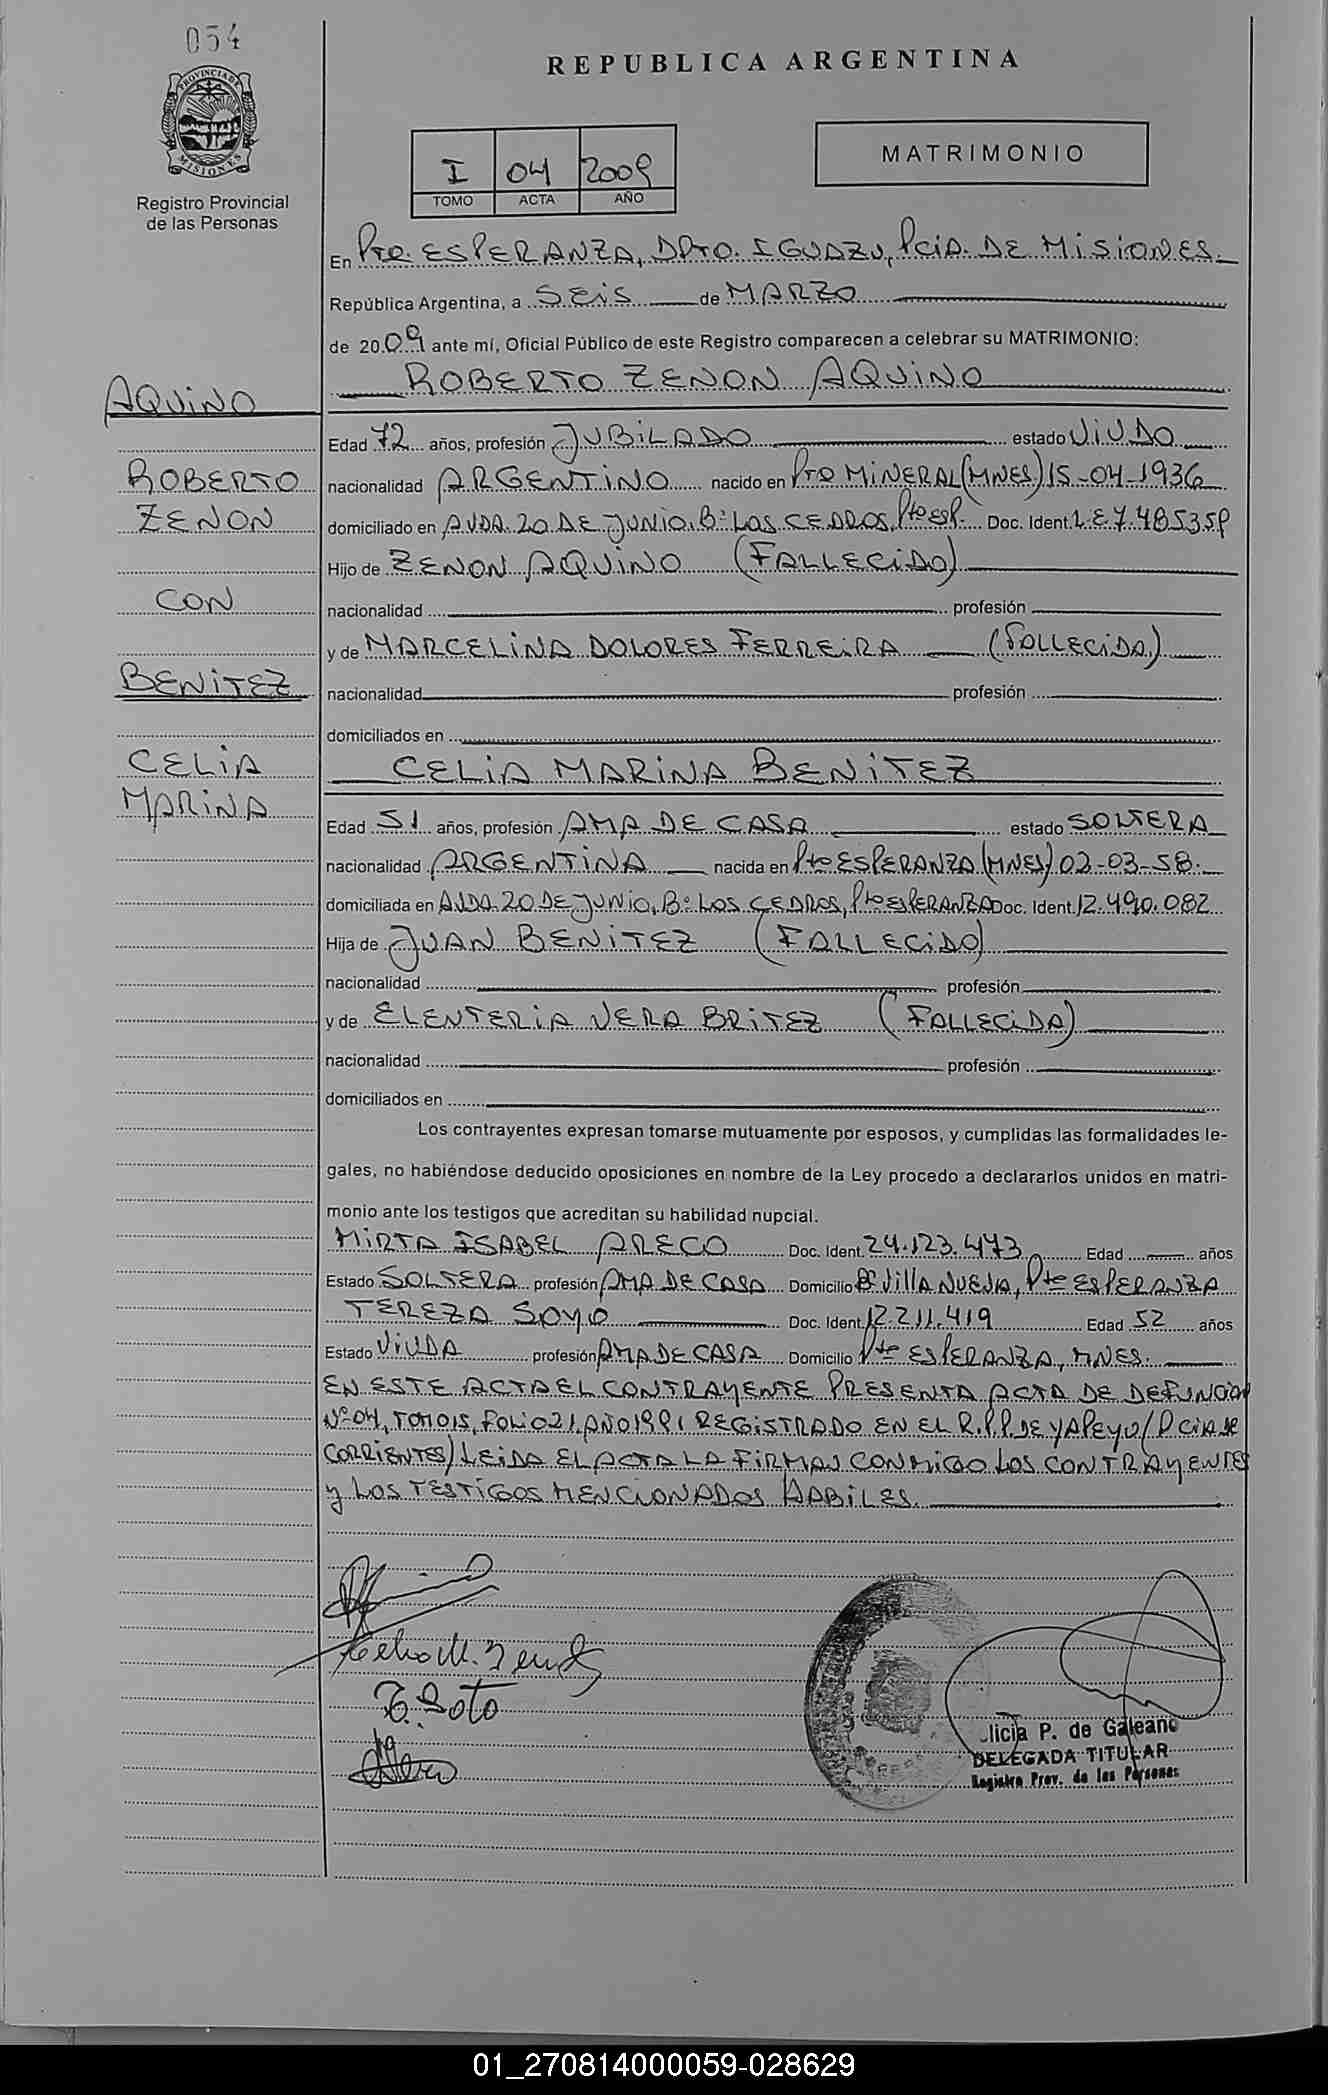 054
REPUBLICA ARGENTINA
PROVINCIA DE MISIONES
Registro Provincial
de las Personas
I 04 2009
TOMO ACTA AÑO
MATRIMONIO
En Pto. ESPERANZA, DPTO. IGUAZU, PCIA. DE MISIONES.
República Argentina, a SEIS de MARZO
de 2009 ante mí, Oficial Público de este Registro comparecen a celebrar su MATRIMONIO:
ROBERTO ZENON AQUINO
AQUINO
Edad 72 años, profesión JUBILADO estado VIUDO
ROBERTO
nacionalidad ARGENTINO nacido en Pto MINERAL (MNES) 15-04-1936
ZENON
domiciliado en AVDA. 20 DE JUNIO, Bº LOS CEDROS, Pto ESP. Doc. Ident. L.E 7.485359
Hijo de ZENON AQUINO (FALLECIDO)
CON
nacionalidad profesión
y de MARCELINA DOLORES FERREIRA (FALLECIDA)
BENITEZ
nacionalidad profesión
domiciliados en
CELIA
MARINA
CELIA MARINA BENITEZ
Edad 51 años, profesión AMA DE CASA estado SOLTERA
nacionalidad ARGENTINA nacida en Pto ESPERANZA (MNES) 02-03-58.
domiciliada en AVDA. 20 DE JUNIO, Bº LOS CEDROS, Pto ESPERANZA Doc. Ident. 12.490.082
Hija de JUAN BENITEZ (FALLECIDO)
nacionalidad profesión
y de ELENTERIA VERA BRITEZ (FALLECIDA)
nacionalidad profesión
domiciliados en
Los contrayentes expresan tomarse mutuamente por esposos, y cumplidas las formalidades le-
gales, no habiéndose deducido oposiciones en nombre de la Ley procedo a declararlos unidos en matri-
monio ante los testigos que acreditan su habilidad nupcial.
MIRTA ISABEL ARECO Doc. Ident. 24.123.473 Edad años
Estado SOLTERA profesión AMA DE CASA Domicilio Bº VILLA NUEVA, Pto ESPERANZA
TEREZA SOTO Doc. Ident. 12.211.419 Edad 52 años
Estado VIUDA profesión AMA DE CASA Domicilio Pto ESPERANZA, MNES.
EN ESTE ACTA EL CONTRAYENTE PRESENTA ACTA DE DEFUNCION
Nº 04, TOMO 1S, FOLIO 21, AÑO 1991 REGISTRADO EN EL R.P.P. DE YAPEYU (PCIA DE
CORRIENTES) LEIDA EL ACTA LA FIRMAN CONMIGO LOS CONTRAYENTES
Y LOS TESTIGOS MENCIONADOS HABILES.
T. Soto
licia P. de Galeano
DELEGADA TITULAR
Registro Prov. de las Personas
01_270814000059-028629